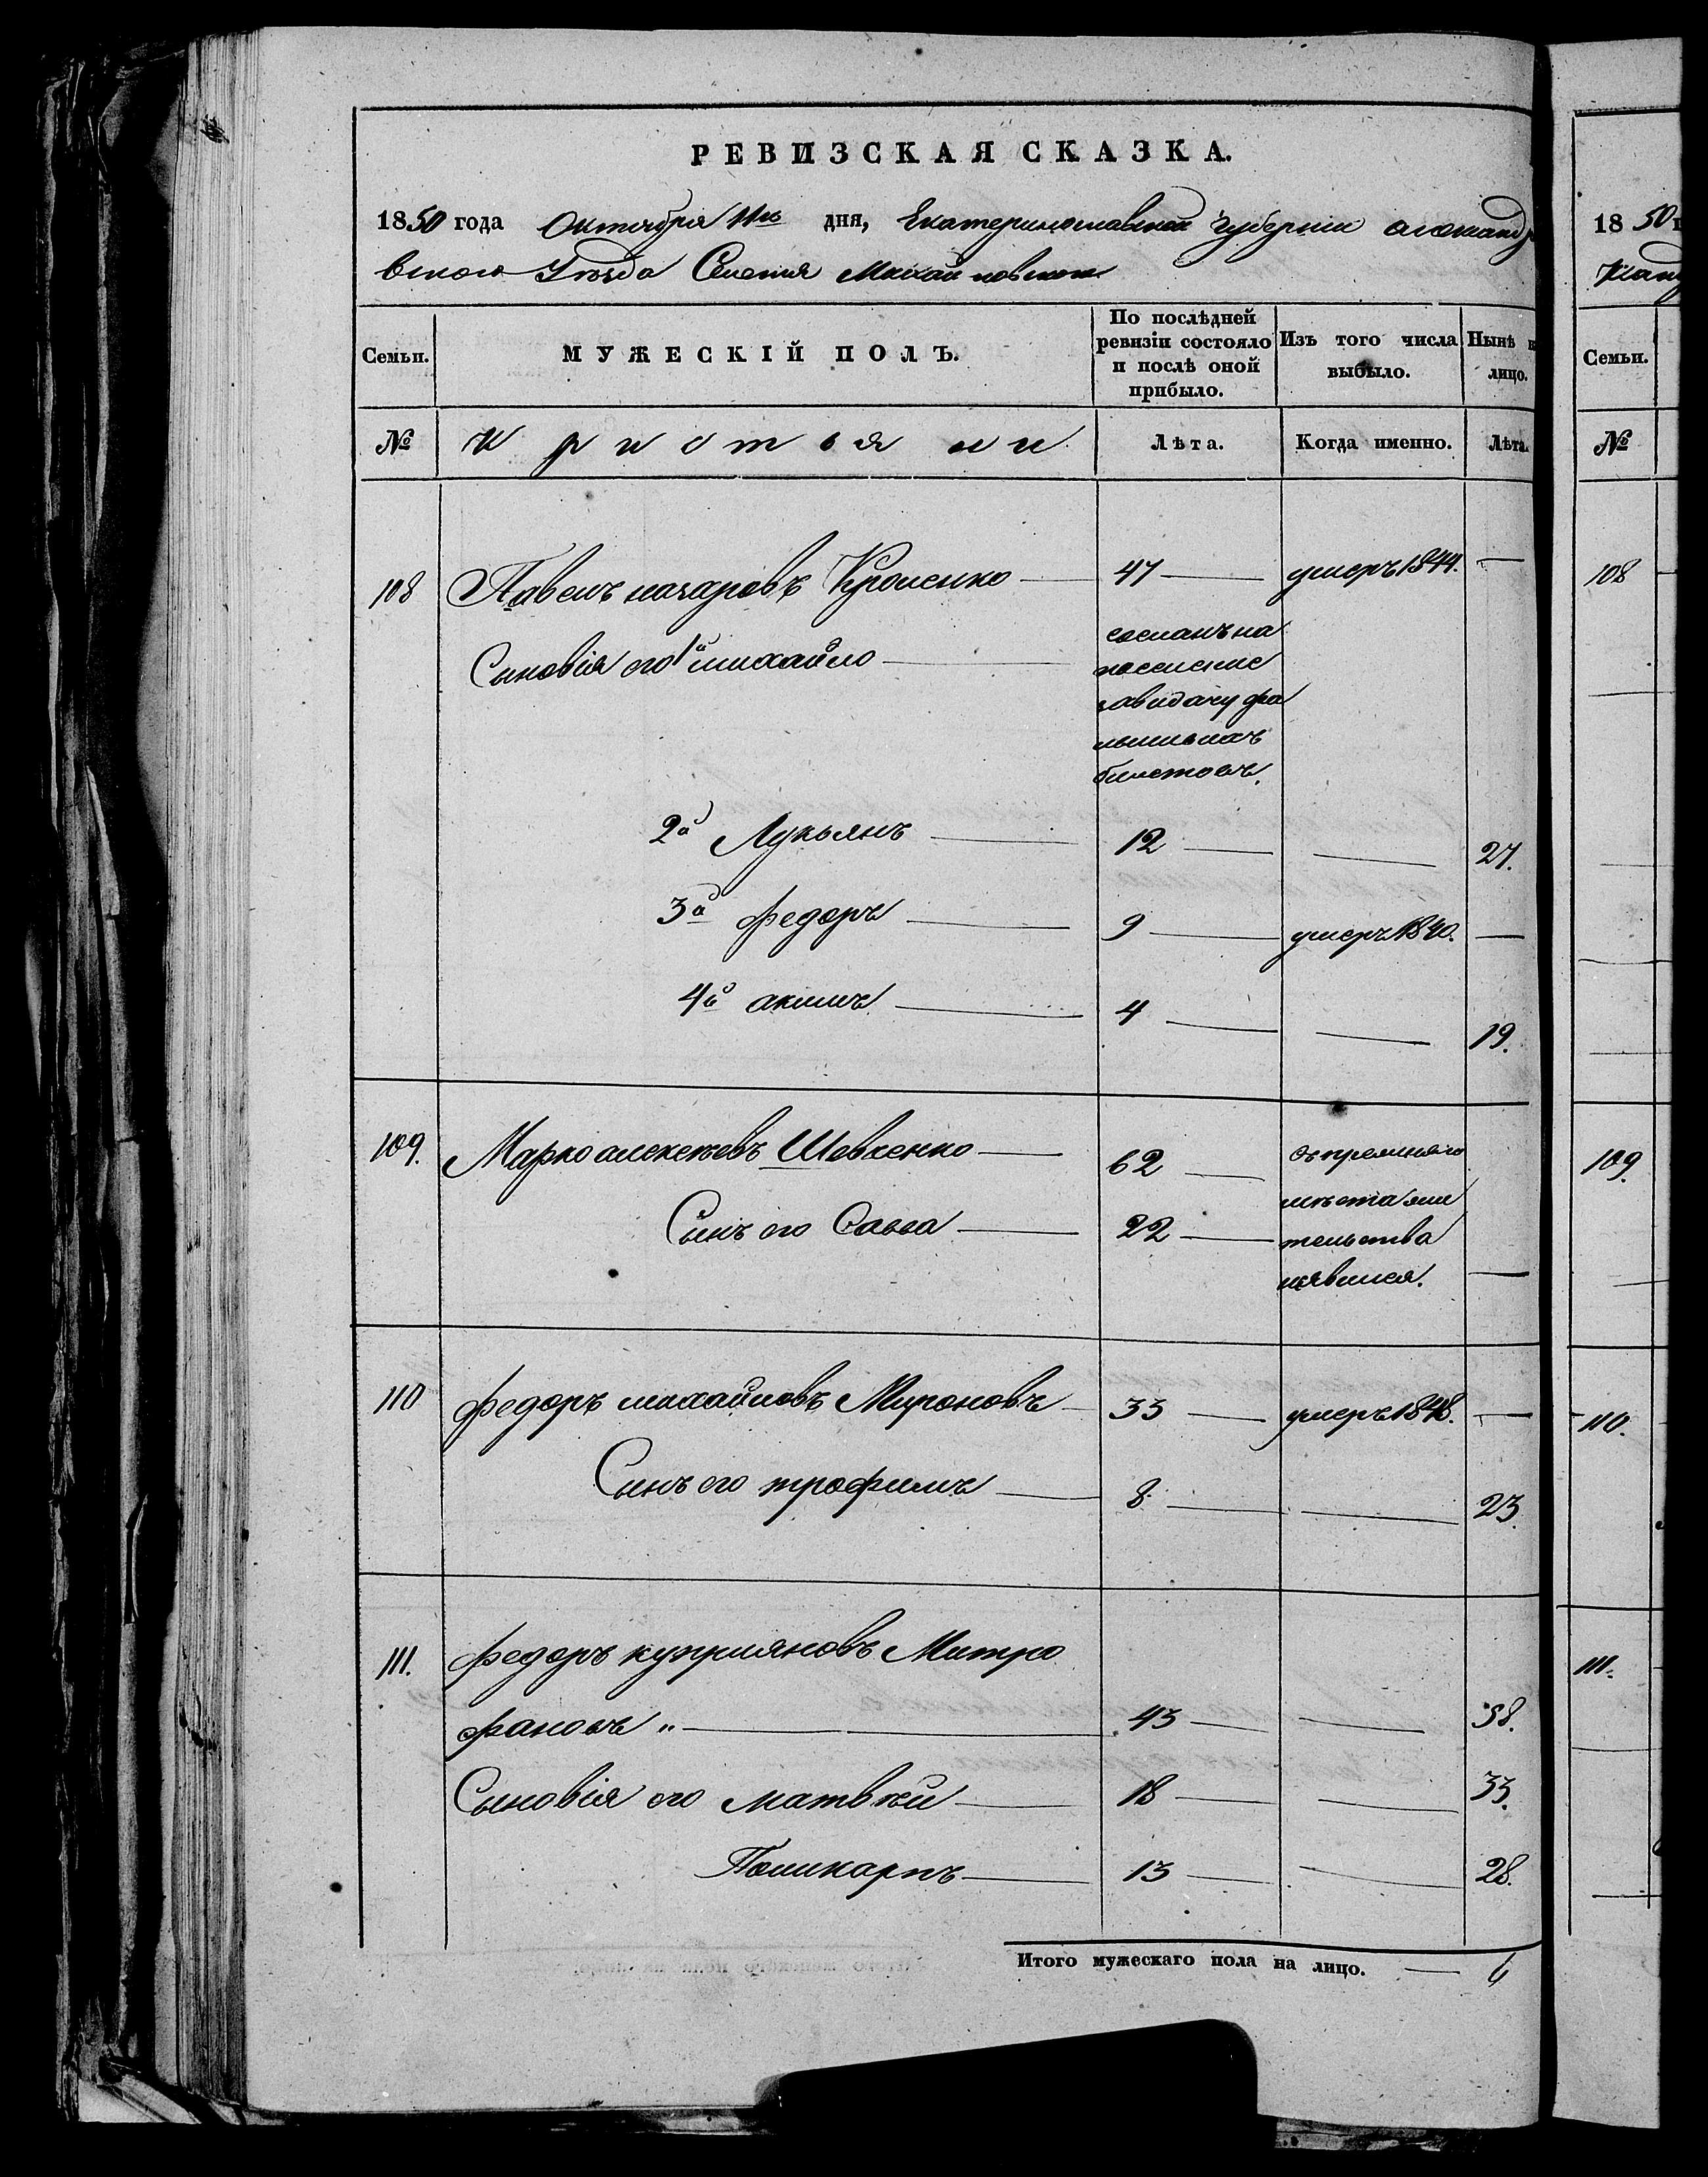 РЕВИЗСКАЯ СКАЗКА.
1850 года Октября 11го дня, Екатеринославской Губернии александр
вского Уезда Селения Михайловского
Семьи.
МУЖЕСКІЙ ПОЛЪ.
По послѣдней
ревизіи состояло
и послѣ оной
прибыло.
Изъ того числа
выбыло.
Нынѣ н
лицо.
№
Кристьяни
Лѣта.
Когда именно.
Лѣта.
108 Павелъ назаровъ 47 умеръ 1844. —
Сыновія его 1й михайло сосланъ на
поселение
за видачу фа
льшивыхъ
билетовъ.
2й Лукьянъ 12 — 27.
3й федоръ 9 умеръ 1840. —
4й акимъ 4 — 19.
109. Марко алексеевъ Шевченко 62 съ прежняго
Сынъ его Савва 22 мѣста жи
тельства
неявился. —
110 федоръ михайловъ Мироновъ 33 умеръ 1848. —
Сынъ его трофимъ 8 — 23.
111. федоръ куприяновъ Митро
фановъ „ 43 — 58.
Сыновія его матвѣй 18 — 33.
Поликарпъ 13 — 28.
Итого мужескаго пола на лицо. — 6
18 50 г
Семьи.
№
108
109.
110.
111.